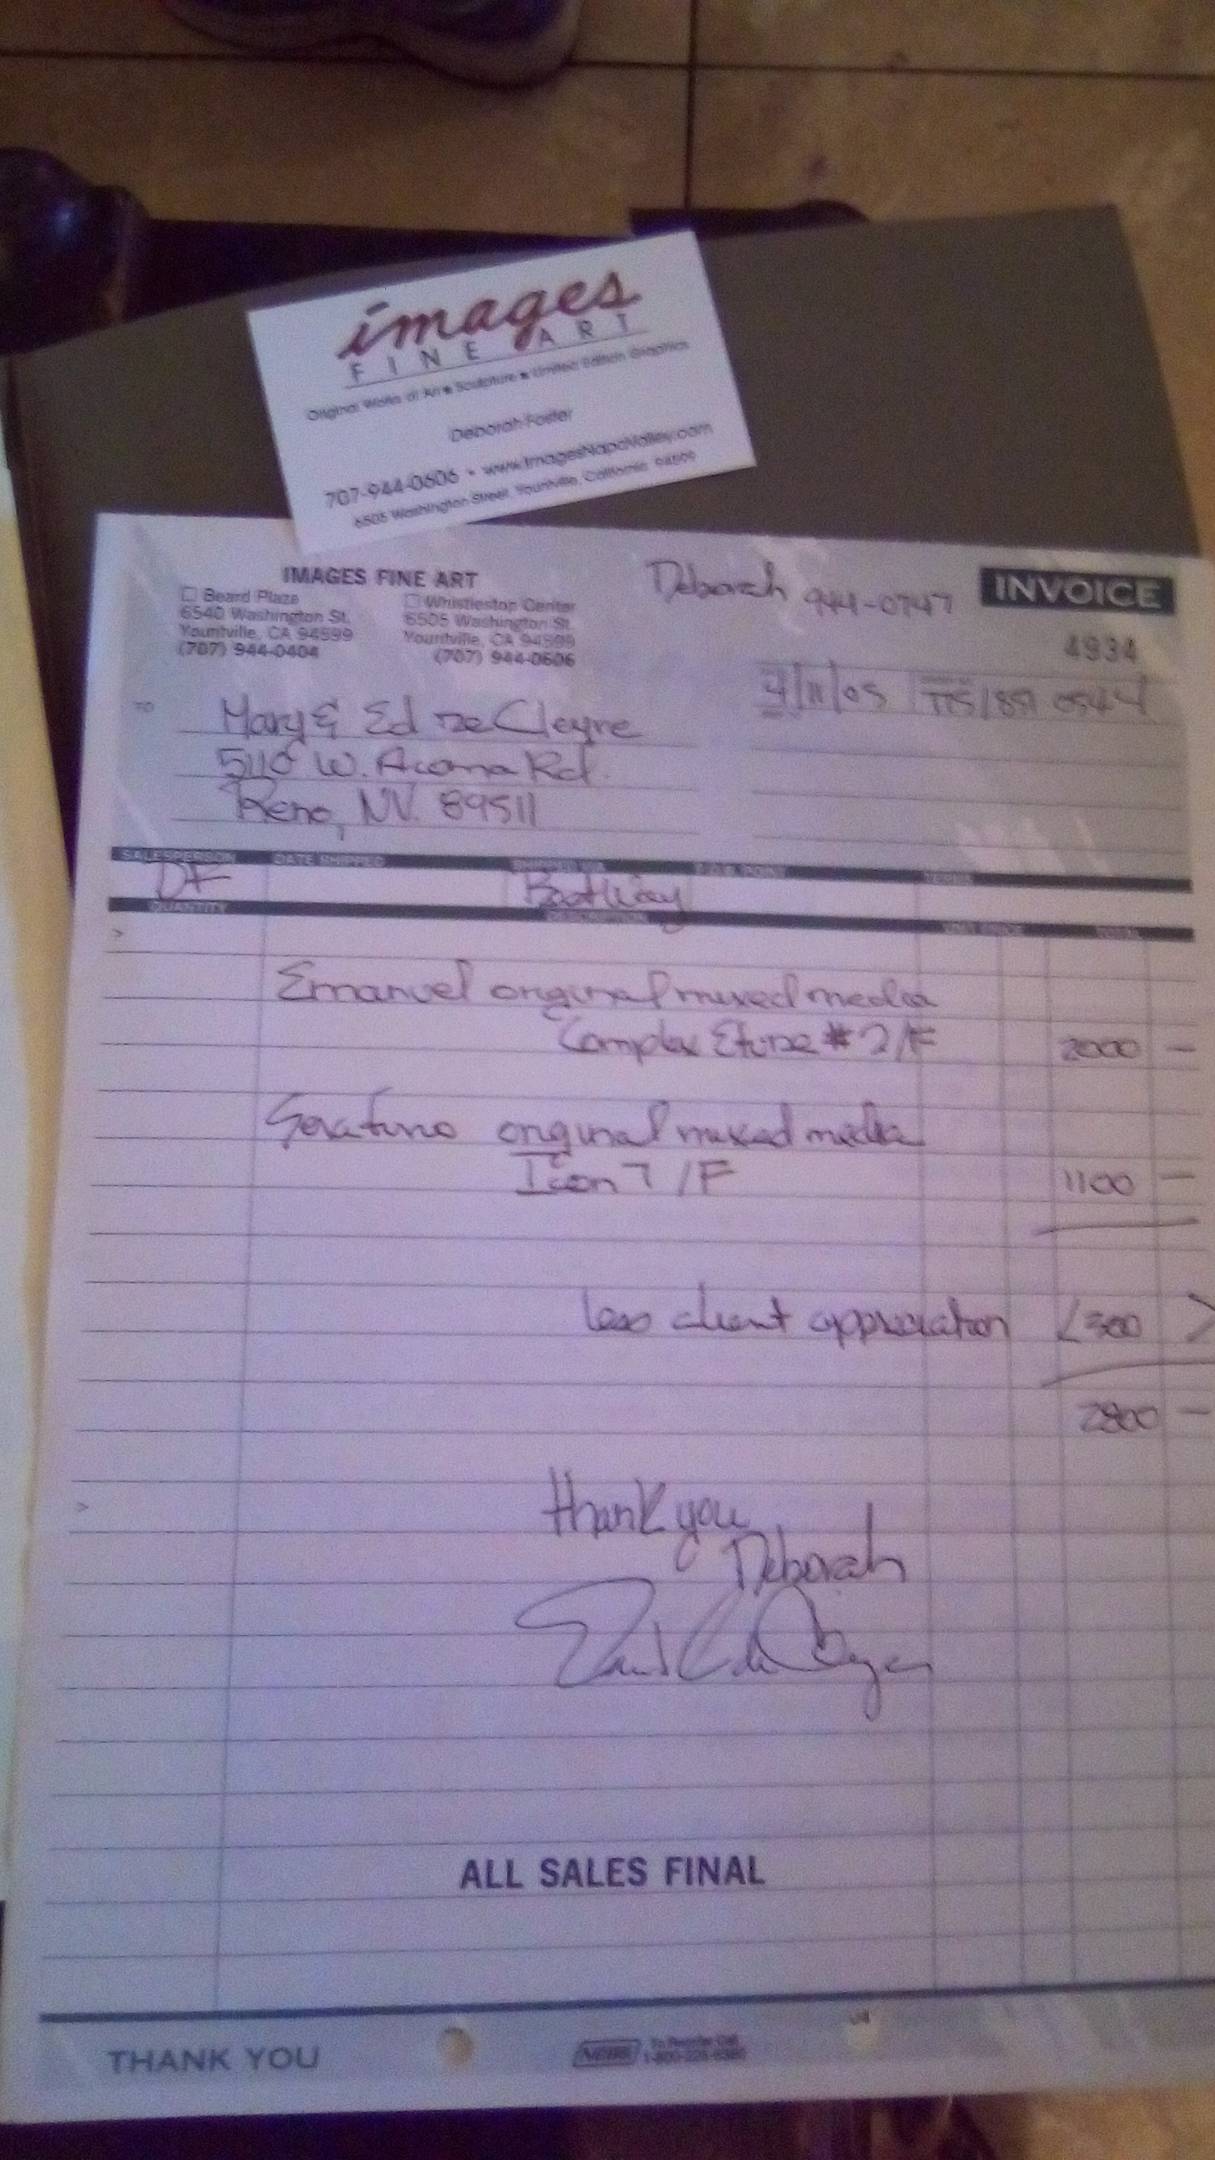 images
FINE ART
Original Works of Art • Sculpture • Limited Edition Graphics
Deborah Foster
707-944-0606 • www.ImagesNapaValley.com
6505 Washington Street, Yountville, California 94599
IMAGES FINE ART
Beard Plaza
6540 Washington St.
Yountville, CA 94599
(707) 944-0404
Whistlestop Center
6505 Washington St.
Yountville, CA 94599
(707) 944-0606
Deborah 944-0747
INVOICE
4934
4/11/05 775/851 0544
TO
Mary & Ed De Cleyre
W. Acoma Rd.
Reno, NV. 89511
SALESPERSON DATE SHIPPED SHIPPED VIA F.O.B. POINT TERMS
DF
QUANTITY DESCRIPTION UNIT PRICE TOTAL
Emanuel original mixed media
Complex #2/F 2000 —
original mixed media
Icon 7 /F 1100 —
less client appreciation <300 >
2800 —
thank you
Deborah
ALL SALES FINAL
THANK YOU
NEBS To Reorder Call